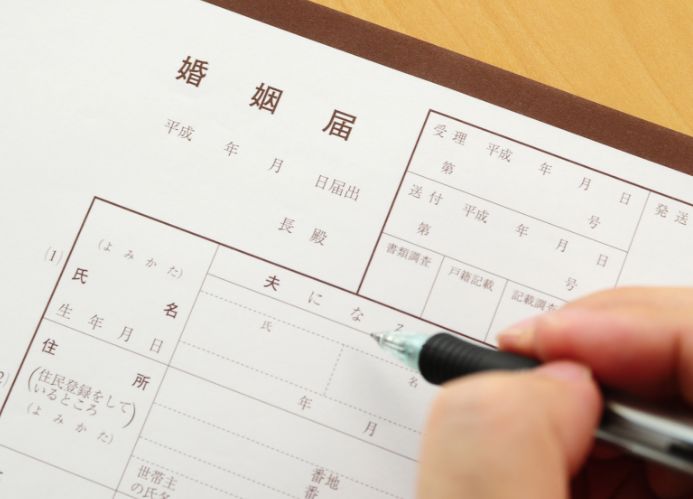 婚姻届
平成 年 月 日届出
長 殿
受理 平成 年 月 日
第 号
発送
送付 平成 年 月 日
第 号
書類調査 戸籍記載 記載調査
(1)
(よみかた)
氏名
生年月日
夫になる
氏 名
年 月
住所
(住民登録をして
いるところ)
(よみかた)
番地
番
世帯主
の氏名